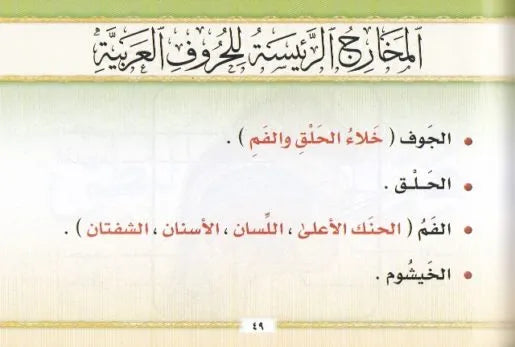 المَخَارِجُ الرَّئِيسَةُ لِلحُرُوفِ العَرَبِيَّةِ
• الجَوف ( خَلاءُ الحَلْقِ والفَمِ ) .
• الحَـلْـق .
• الفَمُ ( الحنَك الأعلىٰ ، اللِّسان ، الأسنان ، الشفتان ) .
• الخَيشُوم .
٤٩